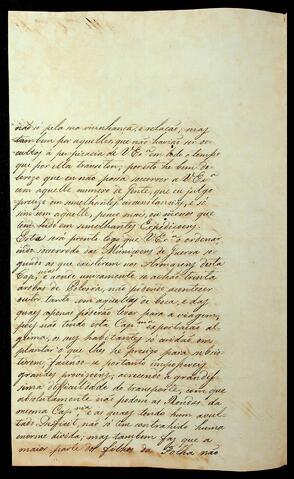 não só pela ma visinhança, e relação, mas
tambem por aquelles que não havião ser oc-
cultos à perspicacia de V Exª em todo o tempo
que por ella transitou; por isto he bem do-
lorozo que eu não possa socorrer a V Exª
com aquelle numero de Gente, que eu julgo
precizo em semelhantes circunstancias, e só
sim com aquelle, pouco mais, ou menos que
tem hido em semelhantes Expediçoens.
Esta será prompta logo que V Exª o ordenar,
indo socorrida das Muniçoens de guerra se-
gundo as que existirem nos Armazens desta
Capnia, e aonde unicamente se achão trinta
arrobas de Polvora, não podendo acontecer
outro tanto com aquellas de boca, e das
quaes apenas poderão levar para a viagem,
pois não tendo esta Capnia exportação al-
guma, os seus habitantes só cuidão em
plantar o que lhes he precizo para subsis-
tirem, fazendo-se portanto impossiveis
grandes provizoens, accrescendo a grandis-
sima difficuldade do transporte, com que
absolutamente não podem as Rendas da
mesma Capnia, e as quaes tendo hum avul-
tado Deficit, não só tem contrahido huma
enorme divida; mas tambem faz que a
maior parte dos filhos da Folha não